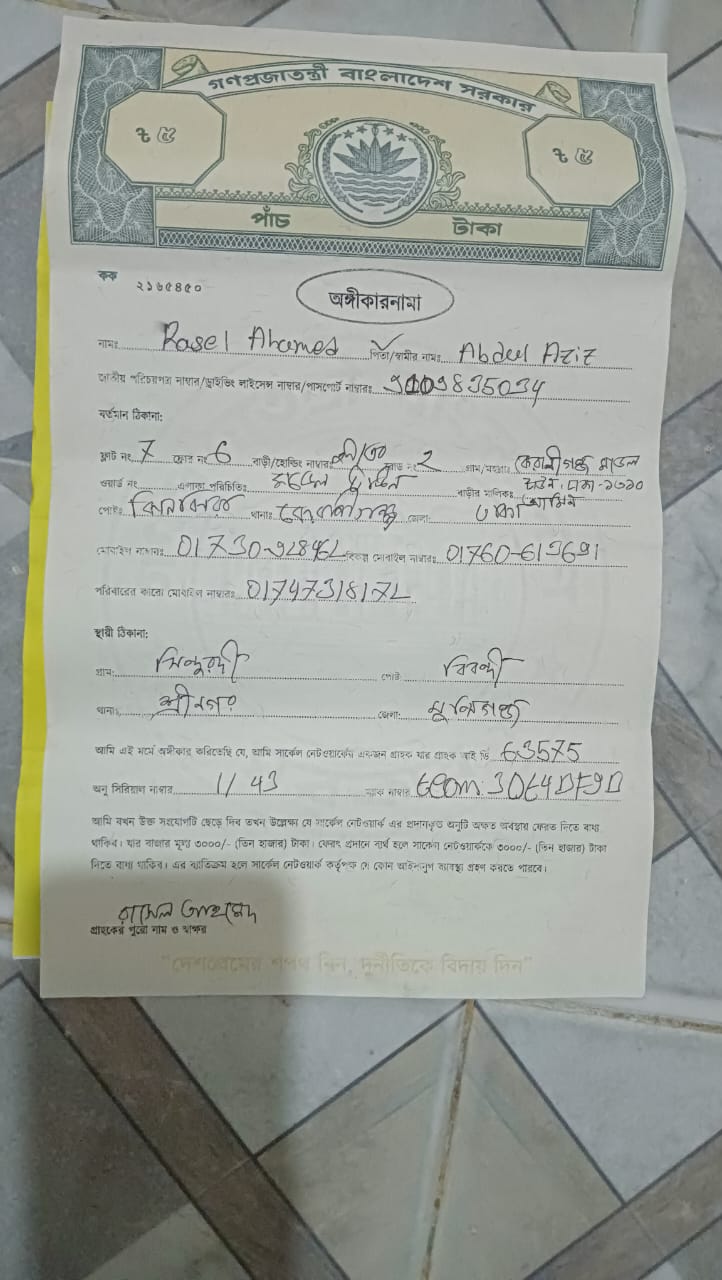 গণপ্রজাতন্ত্রী বাংলাদেশ সরকার
৳ ৫ ৳ ৫
পাঁচ টাকা
কক ২১৬৫৪৫০
অঙ্গীকারনামা
নামঃ Rasel Ahamed পিতা/স্বামীর নামঃ Abdul Aziz
জাতীয় পরিচয়পত্র নাম্বার/ড্রাইভিং লাইসেন্স নাম্বার/পাসপোর্ট নাম্বারঃ
বর্তমান ঠিকানা:
ফ্লাট নং 7 ফ্লোর নং 6 বাড়ী/হোল্ডিং নাম্বারঃ রোড নং 2 গ্রাম/মহল্লাঃ কেরানীগঞ্জ মডেল
ওয়ার্ড নং এলাকা পরিচিতিঃ বাড়ীর মালিকঃ
পোষ্টঃ থানাঃ কেরানীগঞ্জ জেলা: ঢাকা
মোবাইল নাম্বারঃ বিকল্প মোবাইল নাম্বারঃ 01760-619691
পরিবারের কারো মোবাইল নাম্বারঃ 01747318172
স্থায়ী ঠিকানা:
গ্রাম: পোষ্ট:
থানাঃ শ্রীনগর জেলা: মুন্সিগঞ্জ
আমি এই মর্মে অঙ্গীকার করিতেছি যে, আমি সার্কেল নেটওয়ার্কের একজন গ্রাহক যার গ্রাহক আই ডি 63575
অনু সিরিয়াল নাম্বার 1/43 ম্যাক নাম্বার
আমি যখন উক্ত সংযোগটি ছেড়ে দিব তখন উল্লেক্ষ্য যে সার্কেল নেটওয়ার্ক এর প্রদানকৃত অনুটি অক্ষত অবস্থায় ফেরত দিতে বাধ্য
থাকিব। যার বাজার মূল্য ৩০০০/- (তিন হাজার) টাকা। ফেরৎ প্রদানে ব্যর্থ হলে সার্কেল নেটওয়ার্ককে ৩০০০/- (তিন হাজার) টাকা
দিতে বাধ্য থাকিব। এর ব্যতিক্রম হলে সার্কেল নেটওয়ার্ক কর্তৃপক্ষ যে কোন আইনানুগ ব্যবস্থা গ্রহণ করতে পারবে।
রাসেল আহমেদ
গ্রাহকের পুরো নাম ও স্বাক্ষর
"দেশপ্রেমের শপথ নিন, দুর্নীতিকে বিদায় দিন"